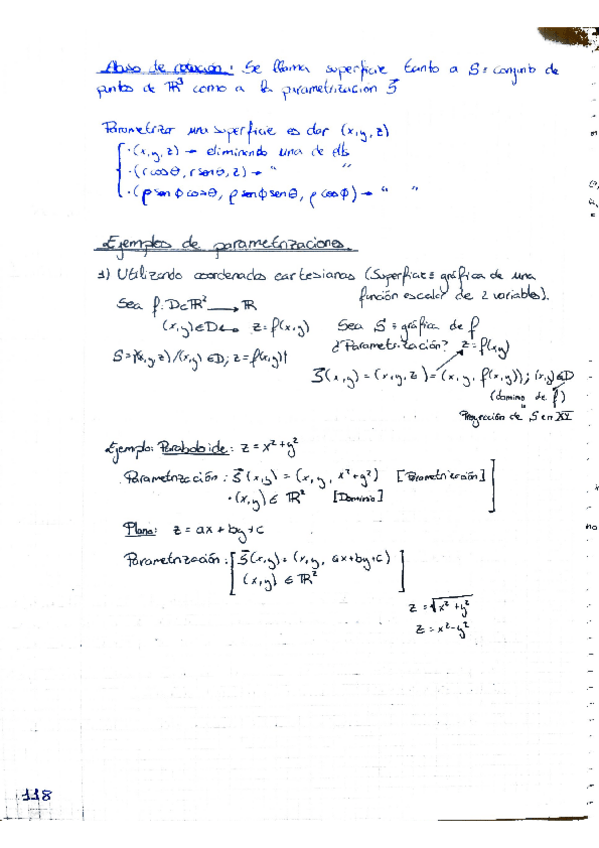 Abuso de notación: Se llama superficie tanto a S = conjunto de
puntos de ℝ³ como a la parametrizacion S⃗
Parametrizar una superficie es dar (x,y,z)
· (x,y,z) → eliminando una de ells
· (r cosθ, r senθ, z) → " "
· (ρ sen φ cosθ, ρ sen φ sen θ, ρ cos φ) → " "
Ejemplos de parametrizaciones.
1) Utilizando coordenadas cartesianas (Superficie ≡ gráfica de una
función escalar de 2 variables).
Sea f: D⊂ℝ² → ℝ
(x,y)∈D ↔ z=f(x,y)
Sea S ≡ gráfica de f
¿Parametrización? z=f(x,y)
S={(x,y,z)/(x,y)∈D; z=f(x,y)}
S⃗(x,y)=(x,y,z)=(x,y,f(x,y)); (x,y)∈D
(dominio de f)
"
Proyección de S en XY
Ejemplo: Paraboloide: z=x²+y²
Parametrización: S⃗(x,y)=(x,y,x²+y²) [Parametrización]
· (x,y)∈ℝ² [Dominio]
Plano: z=ax+by+c
Parametrización: S⃗(x,y)=(x,y,ax+by+c)
(x,y)∈ℝ²
z=√x²+y²
z=x²-y²
118